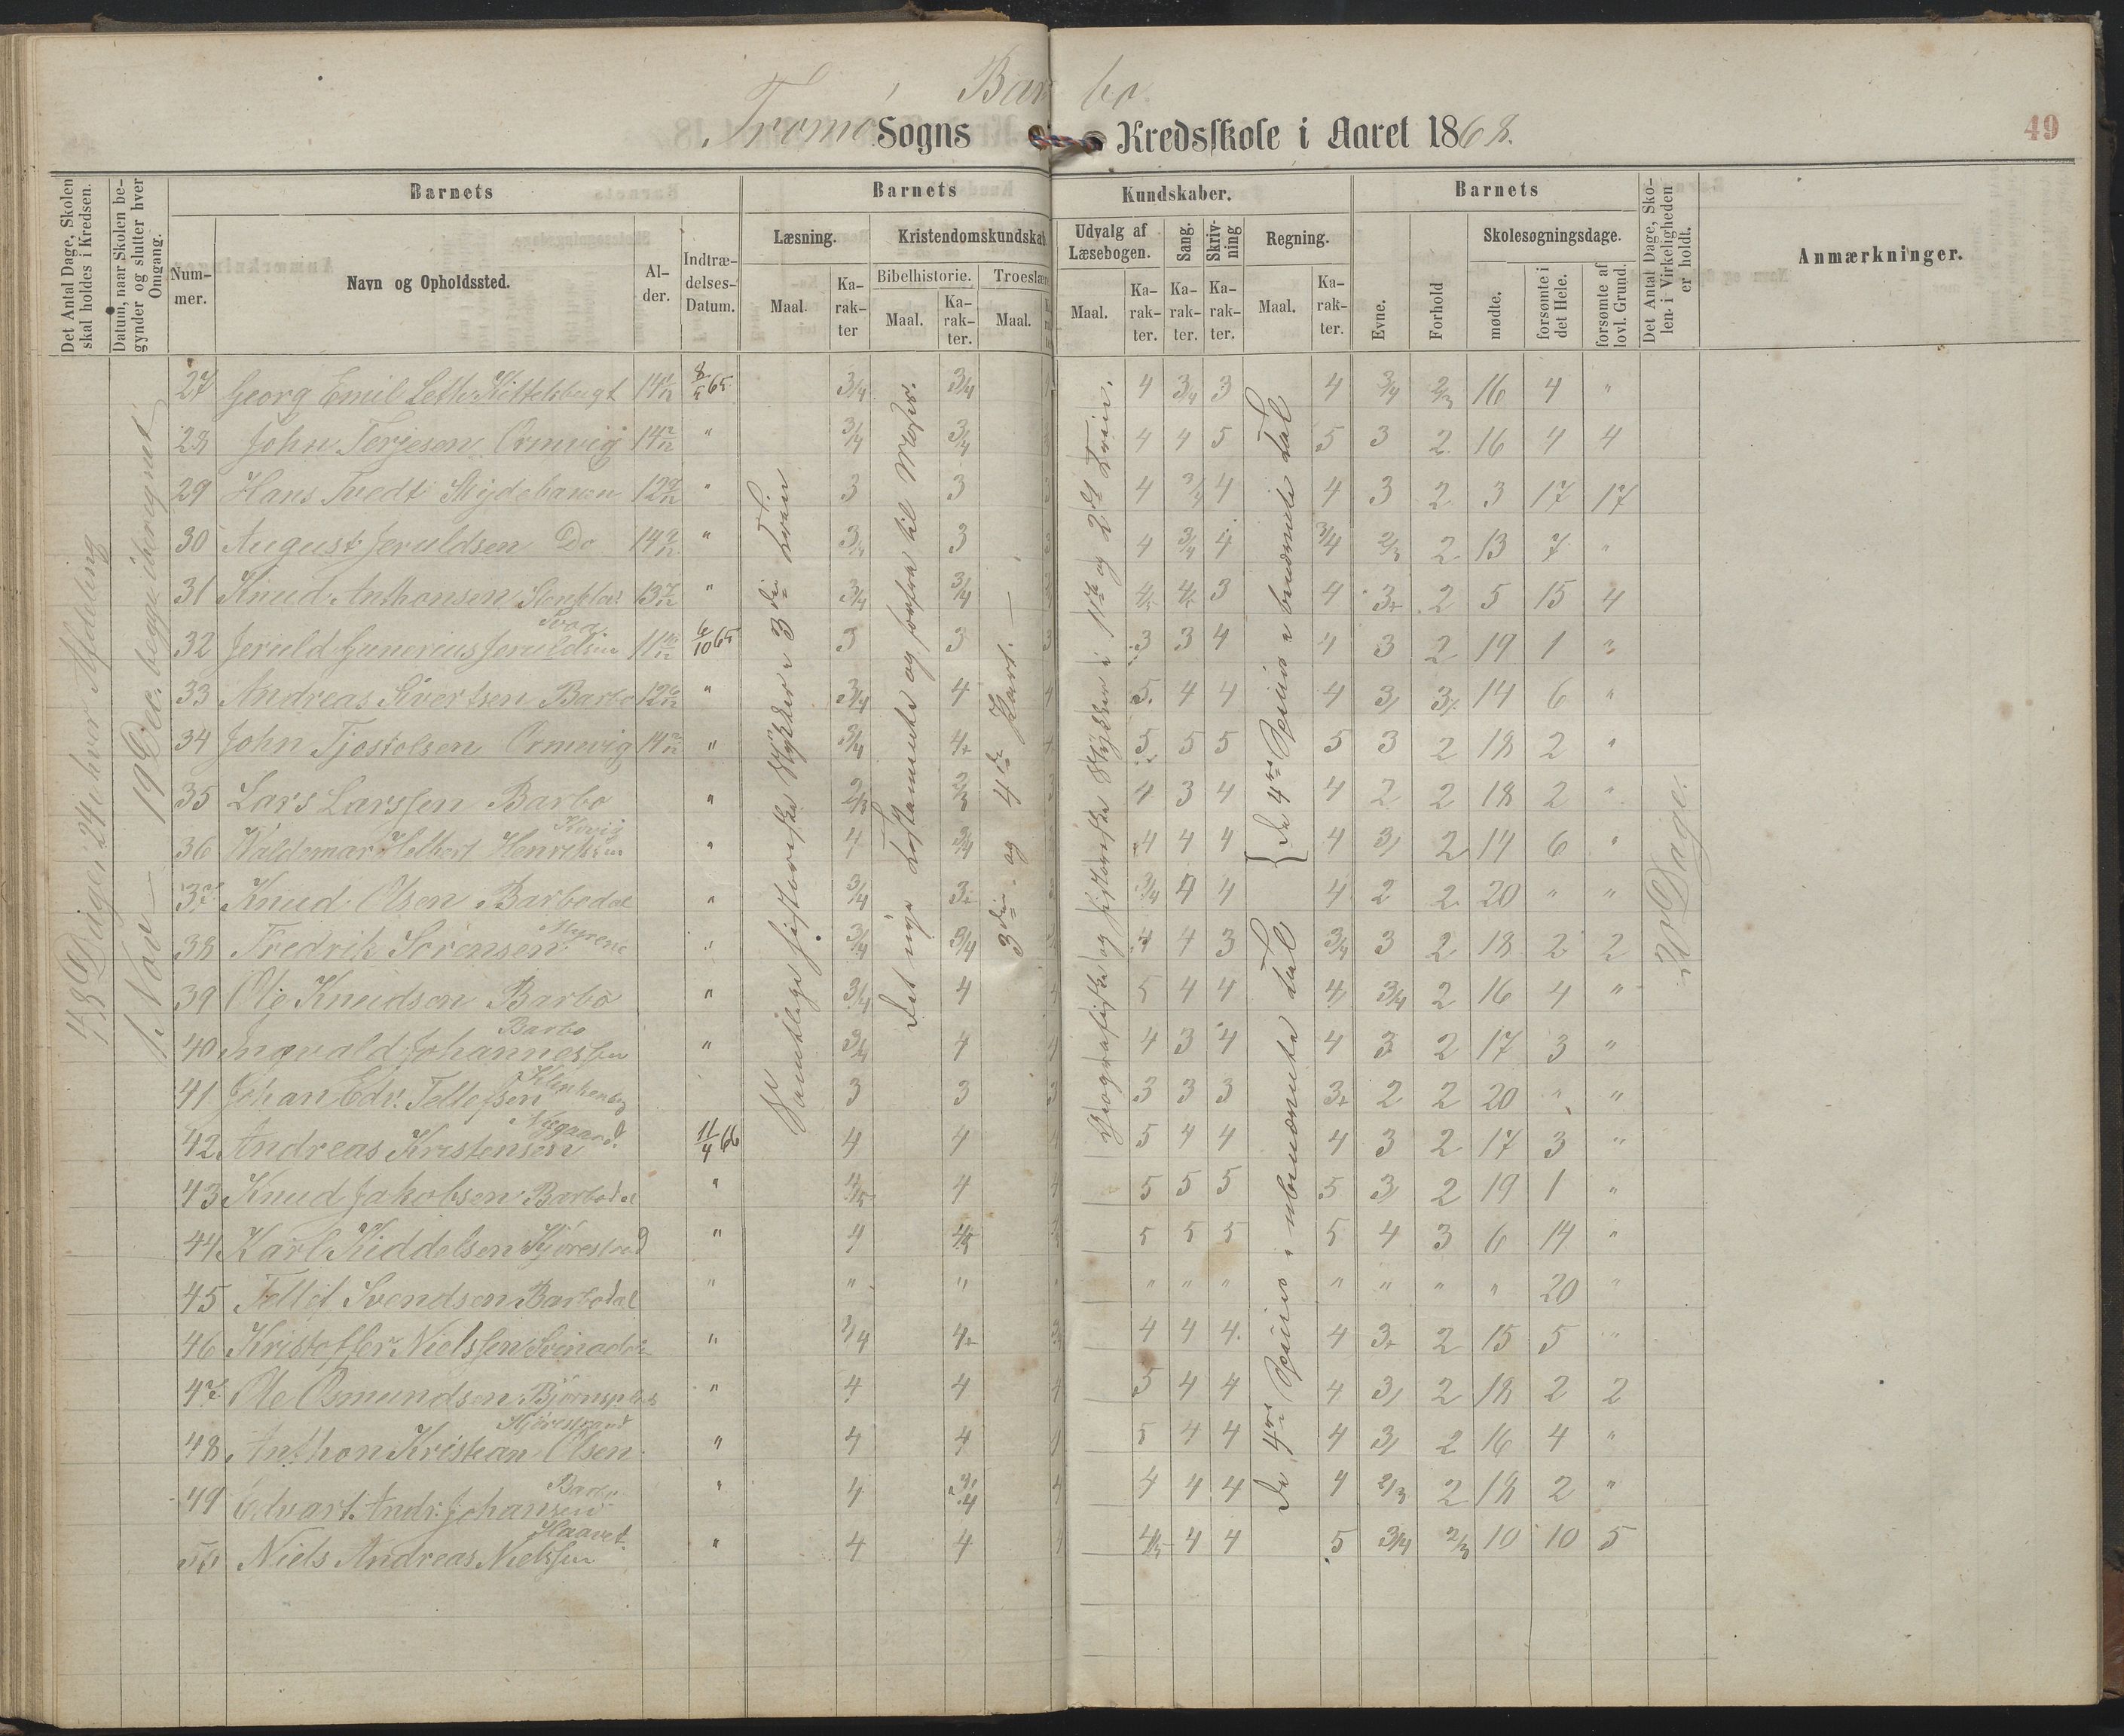 Barbo
Tromø Sogns Kredsskole i Aaret 1868.
49
Det Antal Dage, Skolen skal holdes i Kredsen.
Datum, naar Skolen begynder og slutter hver Omgang.
Barnets
Barnets
Kundskaber.
Barnets
Det Antal Dage, Skolen i Virkeligheden er holdt.
Anmærkninger.
Nummer.
Navn og Opholdssted.
Alder.
Indtrædelses-Datum.
Læsning.
Kristendomskundskab
Udvalg af Læsebogen.
Sang.
Skrivning
Regning.
Evne.
Forhold
Skolesøgningsdage.
Bibelhistorie.
Troeslære
Maal. Karakter
Maal. Karakter.
Maal.
Maal. Karakter.
Karakter.
Karakter.
Maal. Karakter.
mødte.
forsømte i det Hele.
forsømte af lovl. Grund.
48 Dage i 24 i hver Afdeling
1. Nov – 19 Dec. begge iberegnet
Samtlige historiske Stykker i 3die Trin
Det nye Testamente og forfra til Moses.
3die og 4de Part.
Geografiske og historiske Stykker i 1ste og 2det Trin.
De 4re Specier i ubenævnte Tal
De 4re Specier i benævnte Tal
20 Dage.
27 Georg Emil Kittelsbugt 8/5 65 3/4 3/4 4 3/4 3 4 3/4 2/3 16 4 "
28 John Terjesen Ormvig 14 2/12 " 3/4 3/4 4 4 5 5 3 2 16 4 4
29 Hans Tvedt " 3 3 4 3/4 4 4 3 2 3 17 17
30 August Jeruldsen Do " 3/4 3 4 3/4 4 3/4 2/3 2 13 7 "
31 Knud Anthonsen " 3/4 3/4 4/5 4/5 3 4 3+ 2 5 15 4
32 Jeruld Gunerius Jeruldsen 11 10/12 6/10 65 3 3 3 3 3 4 4 3 2 19 1 "
33 Andreas Sivertsen Barbo 12 6/12 " 3/4 4 4 5 4 4 4 3 14 6 "
34 John Tjostolsen Ormvig " 3/4 4+ 5 5 5 5 3 2 18 2 "
35 Lars Larssen Barbo " 2/3 2/3 3 4 3 4 4 2 2 18 2 "
36 Valdemar Helbert Henriksen " 4 3/4 4 4 4 4 3 2 14 6 "
37 Knud Olsen Barbodal " 3/4 3+ 3/4 4 4 4 2 2 20 " "
38 Fredrik Sørensen Myrene " 3/4 3/4 4 4 3 3/4 3 2 18 2 2
39 Ole Knudsen Barbo " 3/4 4 4 5 4 4 4 3/4 2 16 4 "
40 Ingvald Johannessen Barbo " 3/4 4 4 4 3 4 4 3 2 17 3 "
41 Johan Edv. Tellefsen 3 3 3 3 3 3 3+ 2 2 20 " "
42 Andreas Kristensen Nygaard 11/4 66 4 4 5 4 4 4 3 2 17 3 "
43 Knud Jakobsen Barbodal " 4/5 4 5 5 5 5 3 2 19 1 "
44 Karl Kiddelsen Kjørestad " 4 4/5 5 5 5 5 4 3 6 14 "
45 Tellef Svendsen Barbodal " " " " " " " " " " 20 "
46 Kristoffer Nielssen " 3/4 4+ 4 4 4 4 3+ 2 15 5 "
47 Ole Osmundsen Bjørnsplads " 4 4 4 5 4 4 4 3 2 18 2 2
48 Anthon Kristian Olsen " 4 4 5 4 4 4 3 2 16 4 "
49 Edvart Andr. Johansen Barbo " 4 3/4 4 4 4 4 4 2/3 2 18 2 "
50 Niels Andreas Nielssen Haavet " 4 4 4 4/5 4 4 5 3/4 2/3 10 10 5